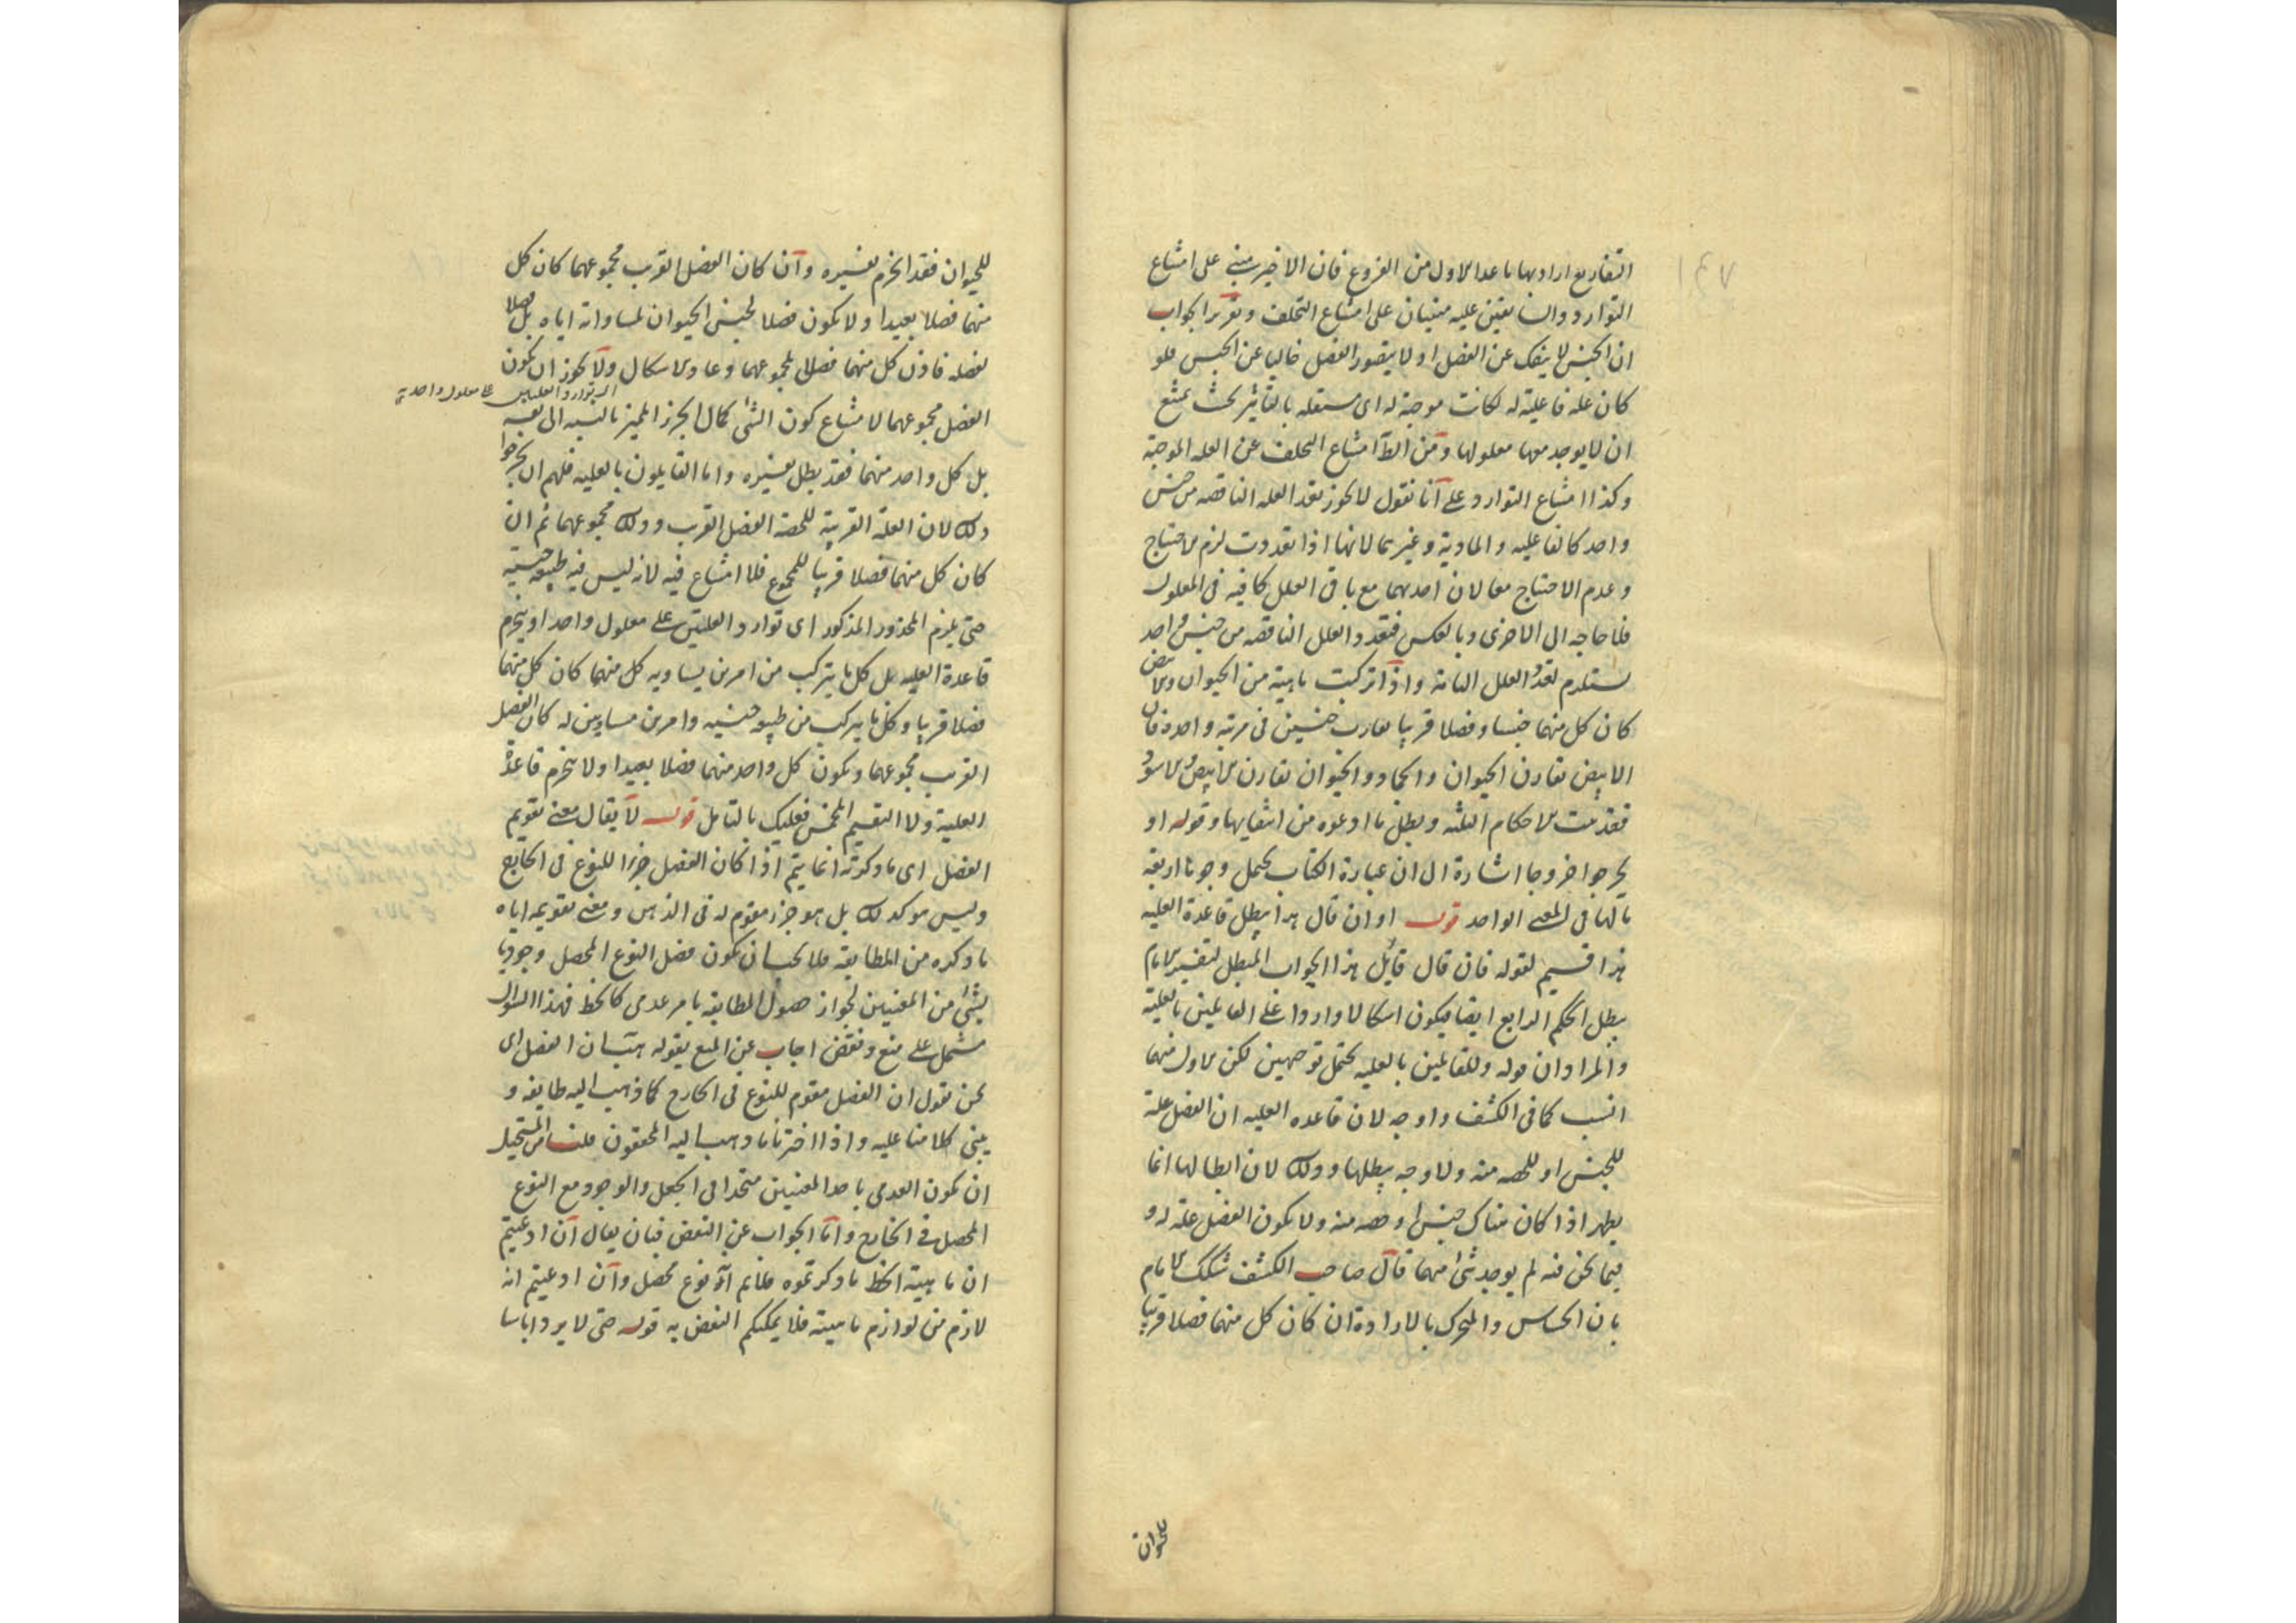 التفاريع اراد بها ما عدا الاول من الفروع فان الاخير مبنى على امتناع
التوارد والسابقين عليه مبنيان على امتناع التخلف وتقرير الجواب
ان الجنس لا ينفك عن الفصل او لا يتصور الفصل خاليا عن الجنس فلو
كان علة فاعلية له لكانت موجبة له اى مستقلة بالتاثير بحيث يمتنع
ان لا يوجد معها معلولها ومن امتناع التخلف عن العلة الموجبة
وكذا امتناع التوارد على انا نقول لا يجوز تعدد العلة الناقصة من جنس
واحد كالفاعلية والمادية وغيرهما لانها اذا تعددت لزم الاحتياج
وعدم الاحتياج معا لان احديهما مع باقى العلل كافية فى المعلول
فلا حاجة الى الاخرى وبالعكس فتعدد العلل الناقصة من جنس واحد
يستلزم تعدد العلل التامة واذا تركبت ماهية من الحيوان والابيض
كان كل منهما جنسا وفصلا قريبا يقارن جنسين فى مرتبة واحدة فان
الابيض يقارن الحيوان والجماد والحيوان يقارن الابيض والاسود
فقد ثبت الاحكام الثلثة وبطل ما ادعوه من انتفايها وقوله او
يخرجوا خروجا اشارة الى ان عبارة الكتاب يحتمل وجوها اربعة
مالها فى المعنى الواحد قوله او ان قال هذا يبطل قاعدة العلية
هذا قسيم لقوله فان قال قايل هذا الجواب المبطل لتفسير الامام
يبطل الحكم الرابع ايضا فيكون اشكالا واردا على القايلين بالعلية
والمراد ان قوله وللقايلين بالعلية يحتمل توجيهين لكن الاول منهما
انسب كما فى الكشف واوجه لان قاعدة العلية ان الفصل علة
للجنس او للحصة منه ولا وجه يبطلها وذلك لان ابطالها انما
يظهر اذا كان هناك جنس او حصة منه ولا يكون الفصل علة له و
فيما نحن فيه لم يوجد شئ منهما قال صاحب الكشف شكك الامام
بان الحساس والمتحرك بالارادة ان كان كل منهما فصلا قريبا
للحيوان
للحيوان فقد انخرم تفسيره وان كان الفصل القريب مجموعهما كان كل
منهما فصلا بعيدا ولا يكون فصلا لجنس الحيوان لمساواته اياه بل فصلا
لفصله فاذن كل منهما فصل لمجموعهما وعاد الاشكال ولا يجوز ان يكون
توارد العلتين على معلول واحد
الفصل مجموعهما لامتناع كون الشئ كمال الجزء المميز بالنسبة الى نفسه
بل كل واحد منهما فقد بطل تفسيره واما القايلون بالعلية فلهم ان يخرجوا
ذلك لان العلة القريبة للحصة الفصل القريب وذلك مجموعهما ثم ان
كان كل منهما فصلا قريبا للمجموع فلا امتناع فيه لانه ليس فيه طبيعة جنسية
حتى يلزم المحذور المذكور اى توارد العلتين على معلول واحد او ينخرم
قاعدة العلية بل كل ما يتركب من امرين يساويه كل منهما كان كل منهما
فصلا قريبا وكل ما يتركب من طبيعة جنسية وامرين مساويين له كان الفصل
القريب مجموعهما ويكون كل واحد منهما فصلا بعيدا ولا ينخرم قاعدة
العلية ولا التقسيم المخمس فعليك بالتامل قوله لا يقال معنى تقويم
الفصل اى ما ذكرته انما يتم اذا كان الفصل جزءا للنوع فى الخارج
وليس هو كذلك بل هو جزء مقوم له فى الذهن ومعنى تقويمه اياه
ما ذكره من المطابقة فلا يجب ان يكون فصل النوع المحصل وجوديا
بشئ من المعنيين لجواز حصول المطابقة بامر عدمى كالخط فهذا السؤال
يشتمل على منع ونقض اجاب عن المنع بقوله هب ان الفصل اى
نحن نقول ان الفصل مقوم للنوع فى الخارج كما ذهب اليه طايفة و
يبنى كلامنا عليه واذا اخترنا ما ذهب اليه المحققون قلنا من المستحيل
ان يكون العدمى باحد المعنيين متحدا فى الجعل والوجود مع النوع
المحصل فى الخارج واما الجواب عن النقض فبان يقال ان ادعيتم
ان ماهية الخط ما ذكرتموه فلا نم انه نوع محصل وان ادعيتم انه
لازم من لوازم ماهيته فلا يمكنكم النقض به قوله حتى لا يرد